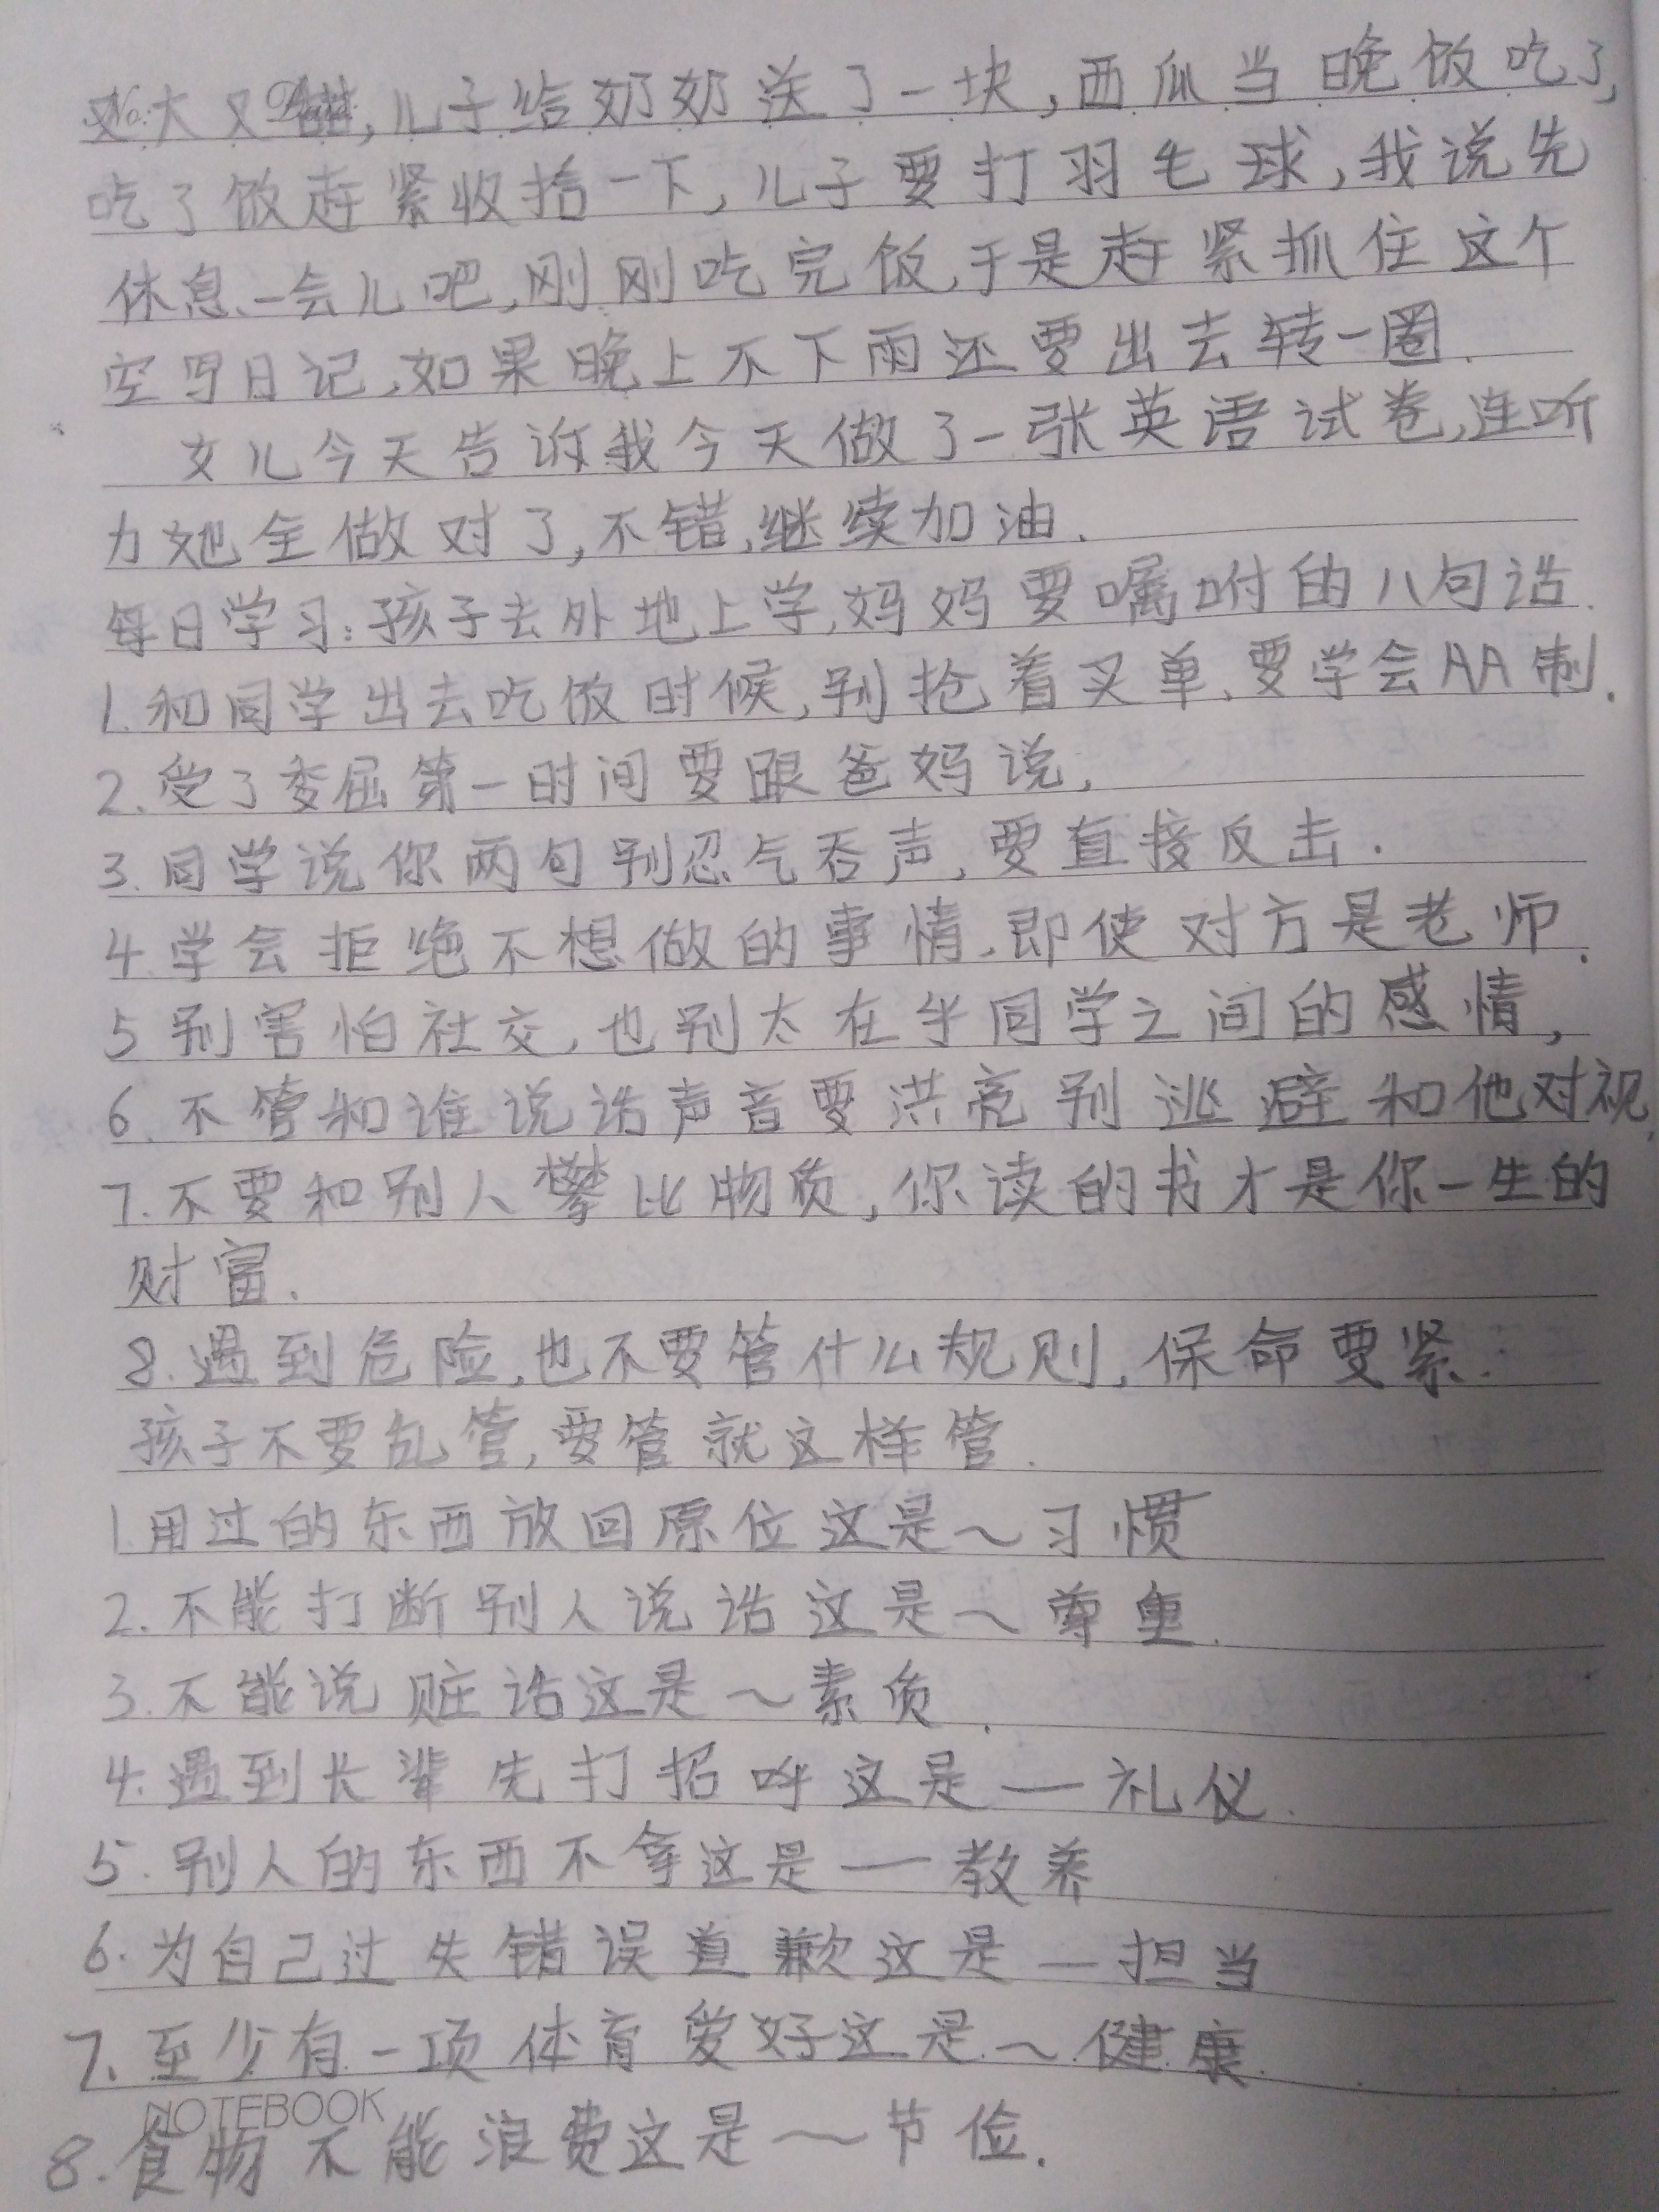 又大又甜,儿子给奶奶送了一块,西瓜当晚饭吃了,
吃了饭赶紧收拾一下,儿子要打羽毛球,我说先
休息一会儿吧,刚刚吃完饭,于是赶紧抓住这个
空写日记,如果晚上不下雨还要出去转一圈.
女儿今天告诉我今天做了一张英语试卷,连听
力她全做对了,不错,继续加油.
每日学习:孩子去外地上学,妈妈要嘱咐的八句话.
1.和同学出去吃饭时候,别抢着买单、要学会AA制.
2.受了委屈第一时间要跟爸妈说,
3.同学说你两句别忍气吞声,要直接反击.
4.学会拒绝不想做的事情,即使对方是老师.
5 别害怕社交,也别太在乎同学之间的感情,
6.不管和谁说话声音要洪亮别逃避和他对视,
7.不要和别人攀比物质,你读的书才是你一生的
财富.
8.遇到危险,也不要管什么规则,保命要紧.
孩子不要乱管,要管就这样管.
1.用过的东西放回原位这是~习惯
2.不能打断别人说话这是~尊重.
3.不能说脏话这是~素质.
4.遇到长辈先打招呼这是—礼仪.
5.别人的东西不拿这是—教养
6.为自己过失错误道歉这是—担当
7.至少有一项体育爱好这是~健康.
NOTEBOOK
8.食物不能浪费这是~节俭.